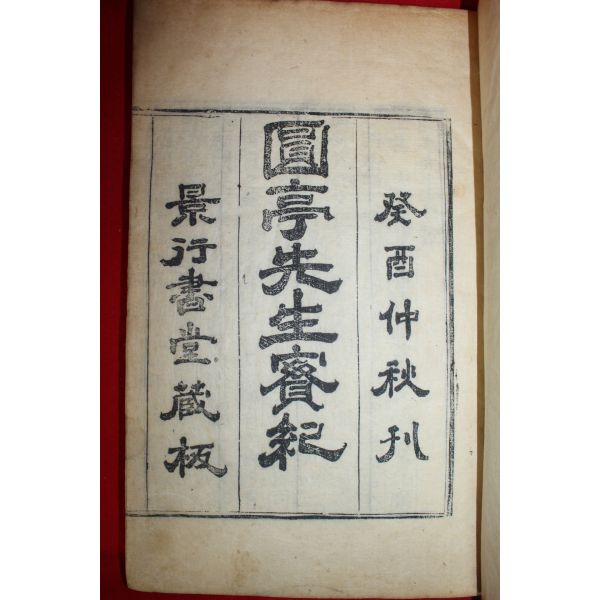 癸酉仲秋刊
圓亭先生實紀
景行書堂蔵板